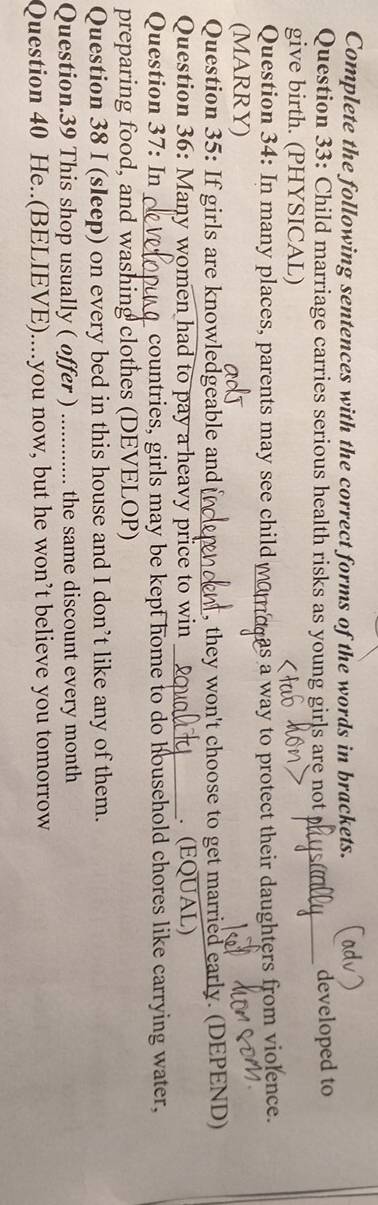 Complete the following sentences with the correct forms of the words in brackets.
(adv)
Question 33: Child marriage carries serious health risks as young girls are not physically developed to
give birth. (PHYSICAL)
<tảo hôn>
Question 34: In many places, parents may see child marriage as a way to protect their daughters from violence.
(MARRY)
kết hôn sớm.
adj
Question 35: If girls are knowledgeable and independent, they won't choose to get married early. (DEPEND)
Question 36: Many women had to pay a heavy price to win equality. (EQUAL)
Question 37: In developing countries, girls may be kept home to do household chores like carrying water,
preparing food, and washing clothes (DEVELOP)
Question 38 I (sleep) on every bed in this house and I don't like any of them.
Question.39 This shop usually ( offer ) ............ the same discount every month
Question 40 He..(BELIEVE)....you now, but he won't believe you tomorrow